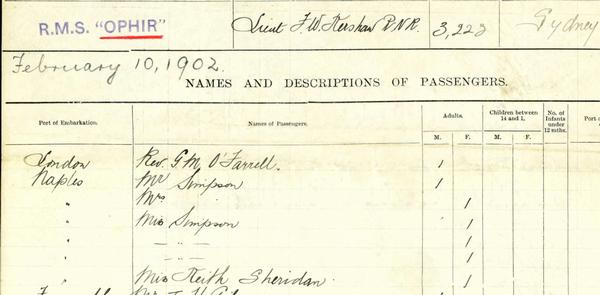 R.M.S. "OPHIR" Lieut F. W. Kershaw R.N.R. 3,223 Sydney
February 10, 1902.
NAMES AND DESCRIPTIONS OF PASSENGERS.
Port of Embarkation. Names of Passengers. Adults. Children between 14 and 1. No. of Infants under 12 mths. Port of
M. F. M. F.
London Rev. G M O'Farrell. 1
Naples Mr Simpson 1
" Mrs " 1
" Miss Simpson 1
" — " — 1
" — " — 1
" Miss Keith Sheridan. 1